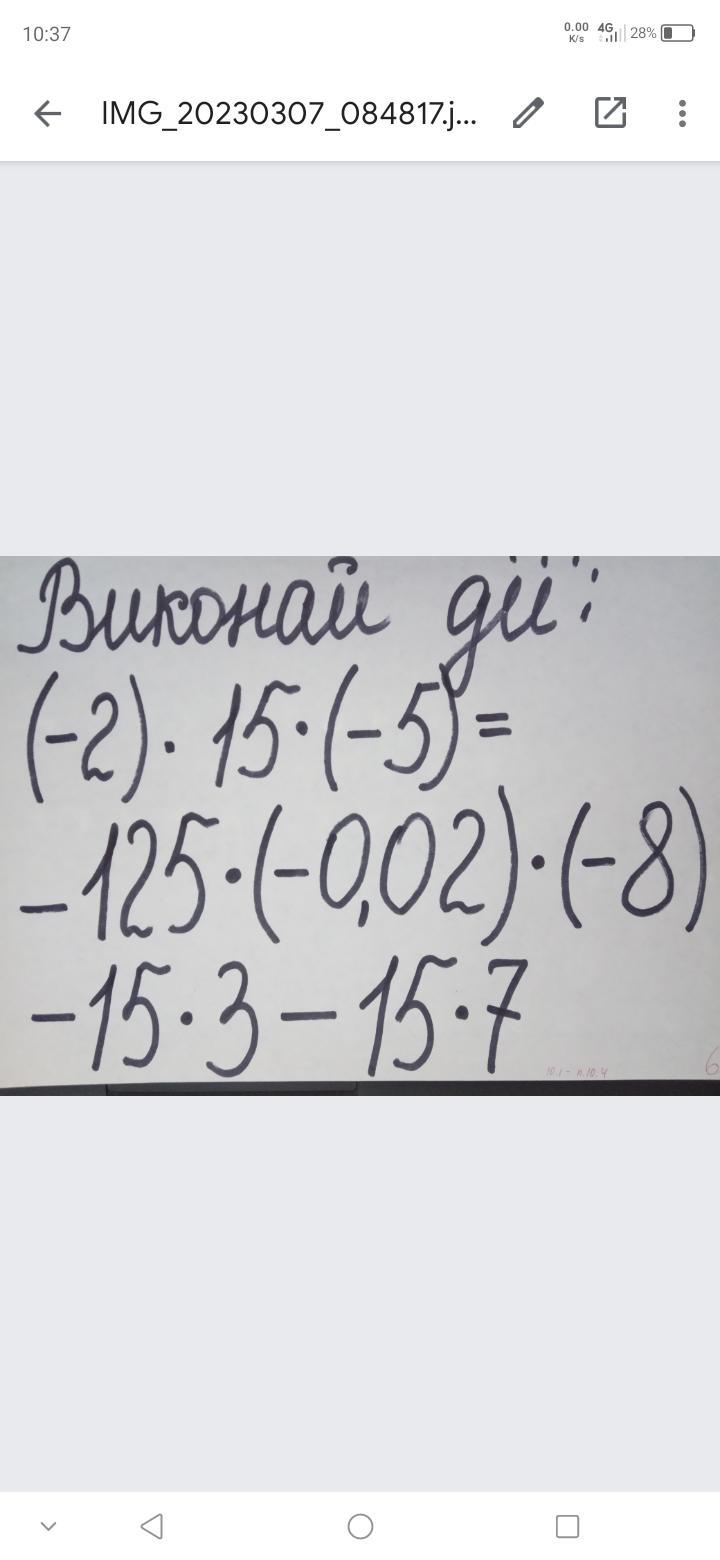 10:37
0.00 K/s 4G 28%
IMG_20230307_084817.j...
Виконай дії:
(-2) · 15 · (-5) =
-125 · (-0,02) · (-8)
-15 · 3 - 15 · 7
10.1 - п.10.4
6